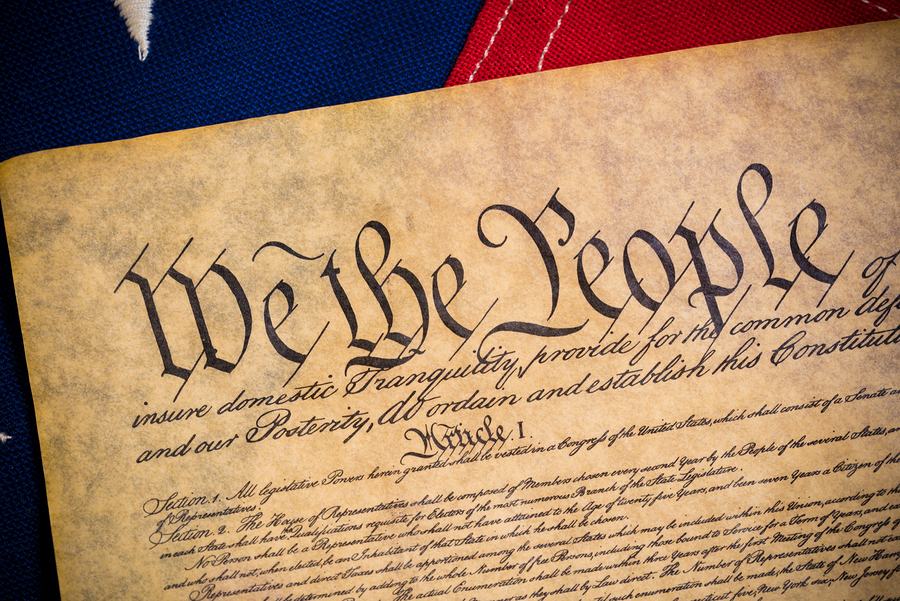 We the People of
insure domestic Tranquility, provide for the common defe
and our Posterity, do ordain and establish this Constituti
Article. I.
Section. 1. All legislative Powers herein granted shall be vested in a Congress of the United States, which shall consist of a Senate an
of Representatives.
Section. 2. The House of Representatives shall be composed of Members chosen every second Year by the People of the several States, an
in each State shall have the Qualifications requisite for Electors of the most numerous Branch of the State Legislature.
No Person shall be a Representative who shall not have attained to the Age of twenty five Years, and been seven Years a Citizen of the
and who shall not, when elected, be an Inhabitant of that State in which he shall be chosen.
Representatives and direct Taxes shall be apportioned among the several States which may be included within this Union, according to the
shall be determined by adding to the whole Number of free Persons, including those bound to Service for a Term of Years, and ex
The actual Enumeration shall be made within three Years after the first Meeting of the Congress of
as they shall by Law direct. The Number of Representatives shall not ex
such enumeration shall be made, the State of New Hamp
five, New York six, New Jersey fo